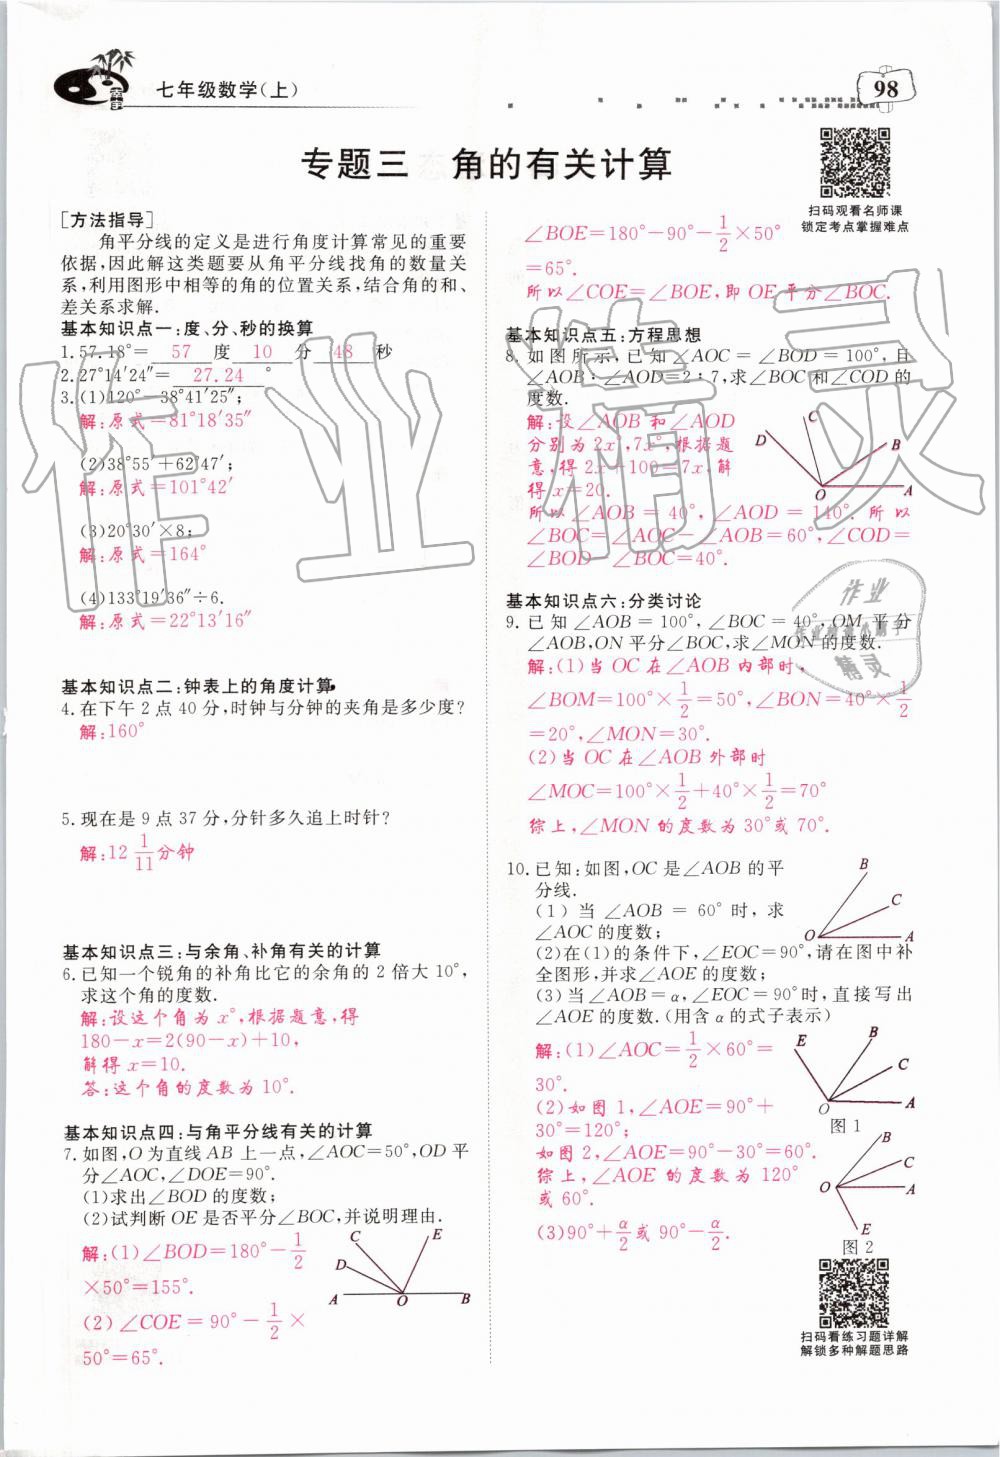 七年级数学(上)
98
专题三 角的有关计算
扫码观看名师课
锁定考点掌握难点
[方法指导]
角平分线的定义是进行角度计算常见的重要
依据,因此解这类题要从角平分线找角的数量关
系,利用图形中相等的角的位置关系,结合角的和、
差关系求解.
基本知识点一:度、分、秒的换算
1.57.18°= 57 度 10 分 48 秒
2.27°14′24″= 27.24 °
3.(1)120°-38°41′25″;
解:原式=81°18′35″
(2)38°55′+62°47′;
解:原式=101°42′
(3)20°30′×8;
解:原式=164°
(4)133°19′36″÷6.
解:原式=22°13′16″
基本知识点二:钟表上的角度计算
4.在下午2点40分,时钟与分钟的夹角是多少度?
解:160°
5.现在是9点37分,分针多久追上时针?
解:12 1/11 分钟
基本知识点三:与余角、补角有关的计算
6.已知一个锐角的补角比它的余角的2倍大10°,
求这个角的度数.
解:设这个角为x°,根据题意,得
180-x=2(90-x)+10,
解得x=10.
答:这个角的度数为10°.
基本知识点四:与角平分线有关的计算
7.如图,O为直线AB上一点,∠AOC=50°,OD平
分∠AOC,∠DOE=90°.
(1)求出∠BOD的度数;
(2)试判断OE是否平分∠BOC,并说明理由.
解:(1)∠BOD=180°-1/2
×50°=155°.
(2)∠COE=90°-1/2×
50°=65°.
C E
D
A O B
∠BOE=180°-90°-1/2×50°
=65°.
所以∠COE=∠BOE,即OE平分∠BOC.
基本知识点五:方程思想
8.如图所示,已知∠AOC=∠BOD=100°,且
∠AOB:∠AOD=2:7,求∠BOC和∠COD的
度数.
解:设∠AOB和∠AOD
分别为2x°,7x°,根据题
意,得2x+100=7x,解
得x=20.
所以∠AOB=40°,∠AOD=140°.所以
∠BOC=∠AOC-∠AOB=60°,∠COD=
∠BOD-∠BOC=40°.
C
D B
O A
基本知识点六:分类讨论
9.已知∠AOB=100°,∠BOC=40°,OM平分
∠AOB,ON平分∠BOC,求∠MON的度数.
解:(1)当OC在∠AOB内部时,
∠BOM=100°×1/2=50°,∠BON=40°×1/2
=20°,∠MON=30°.
(2)当OC在∠AOB外部时
∠MOC=100°×1/2+40°×1/2=70°
综上,∠MON的度数为30°或70°.
10.已知:如图,OC是∠AOB的平
分线.
(1)当∠AOB=60°时,求
∠AOC的度数;
(2)在(1)的条件下,∠EOC=90°,请在图中补
全图形,并求∠AOE的度数;
(3)当∠AOB=α,∠EOC=90°时,直接写出
∠AOE的度数.(用含α的式子表示)
B
C
O A
解:(1)∠AOC=1/2×60°=
30°.
(2)如图1,∠AOE=90°+
30°=120°;
如图2,∠AOE=90°-30°=60°.
综上,∠AOE的度数为120°
或60°.
(3)90°+α/2或90°-α/2.
E B
C
O A
图1
B
C
O A
E
图2
扫码看练习题详解
解锁多种解题思路
作业精灵
作业
精灵